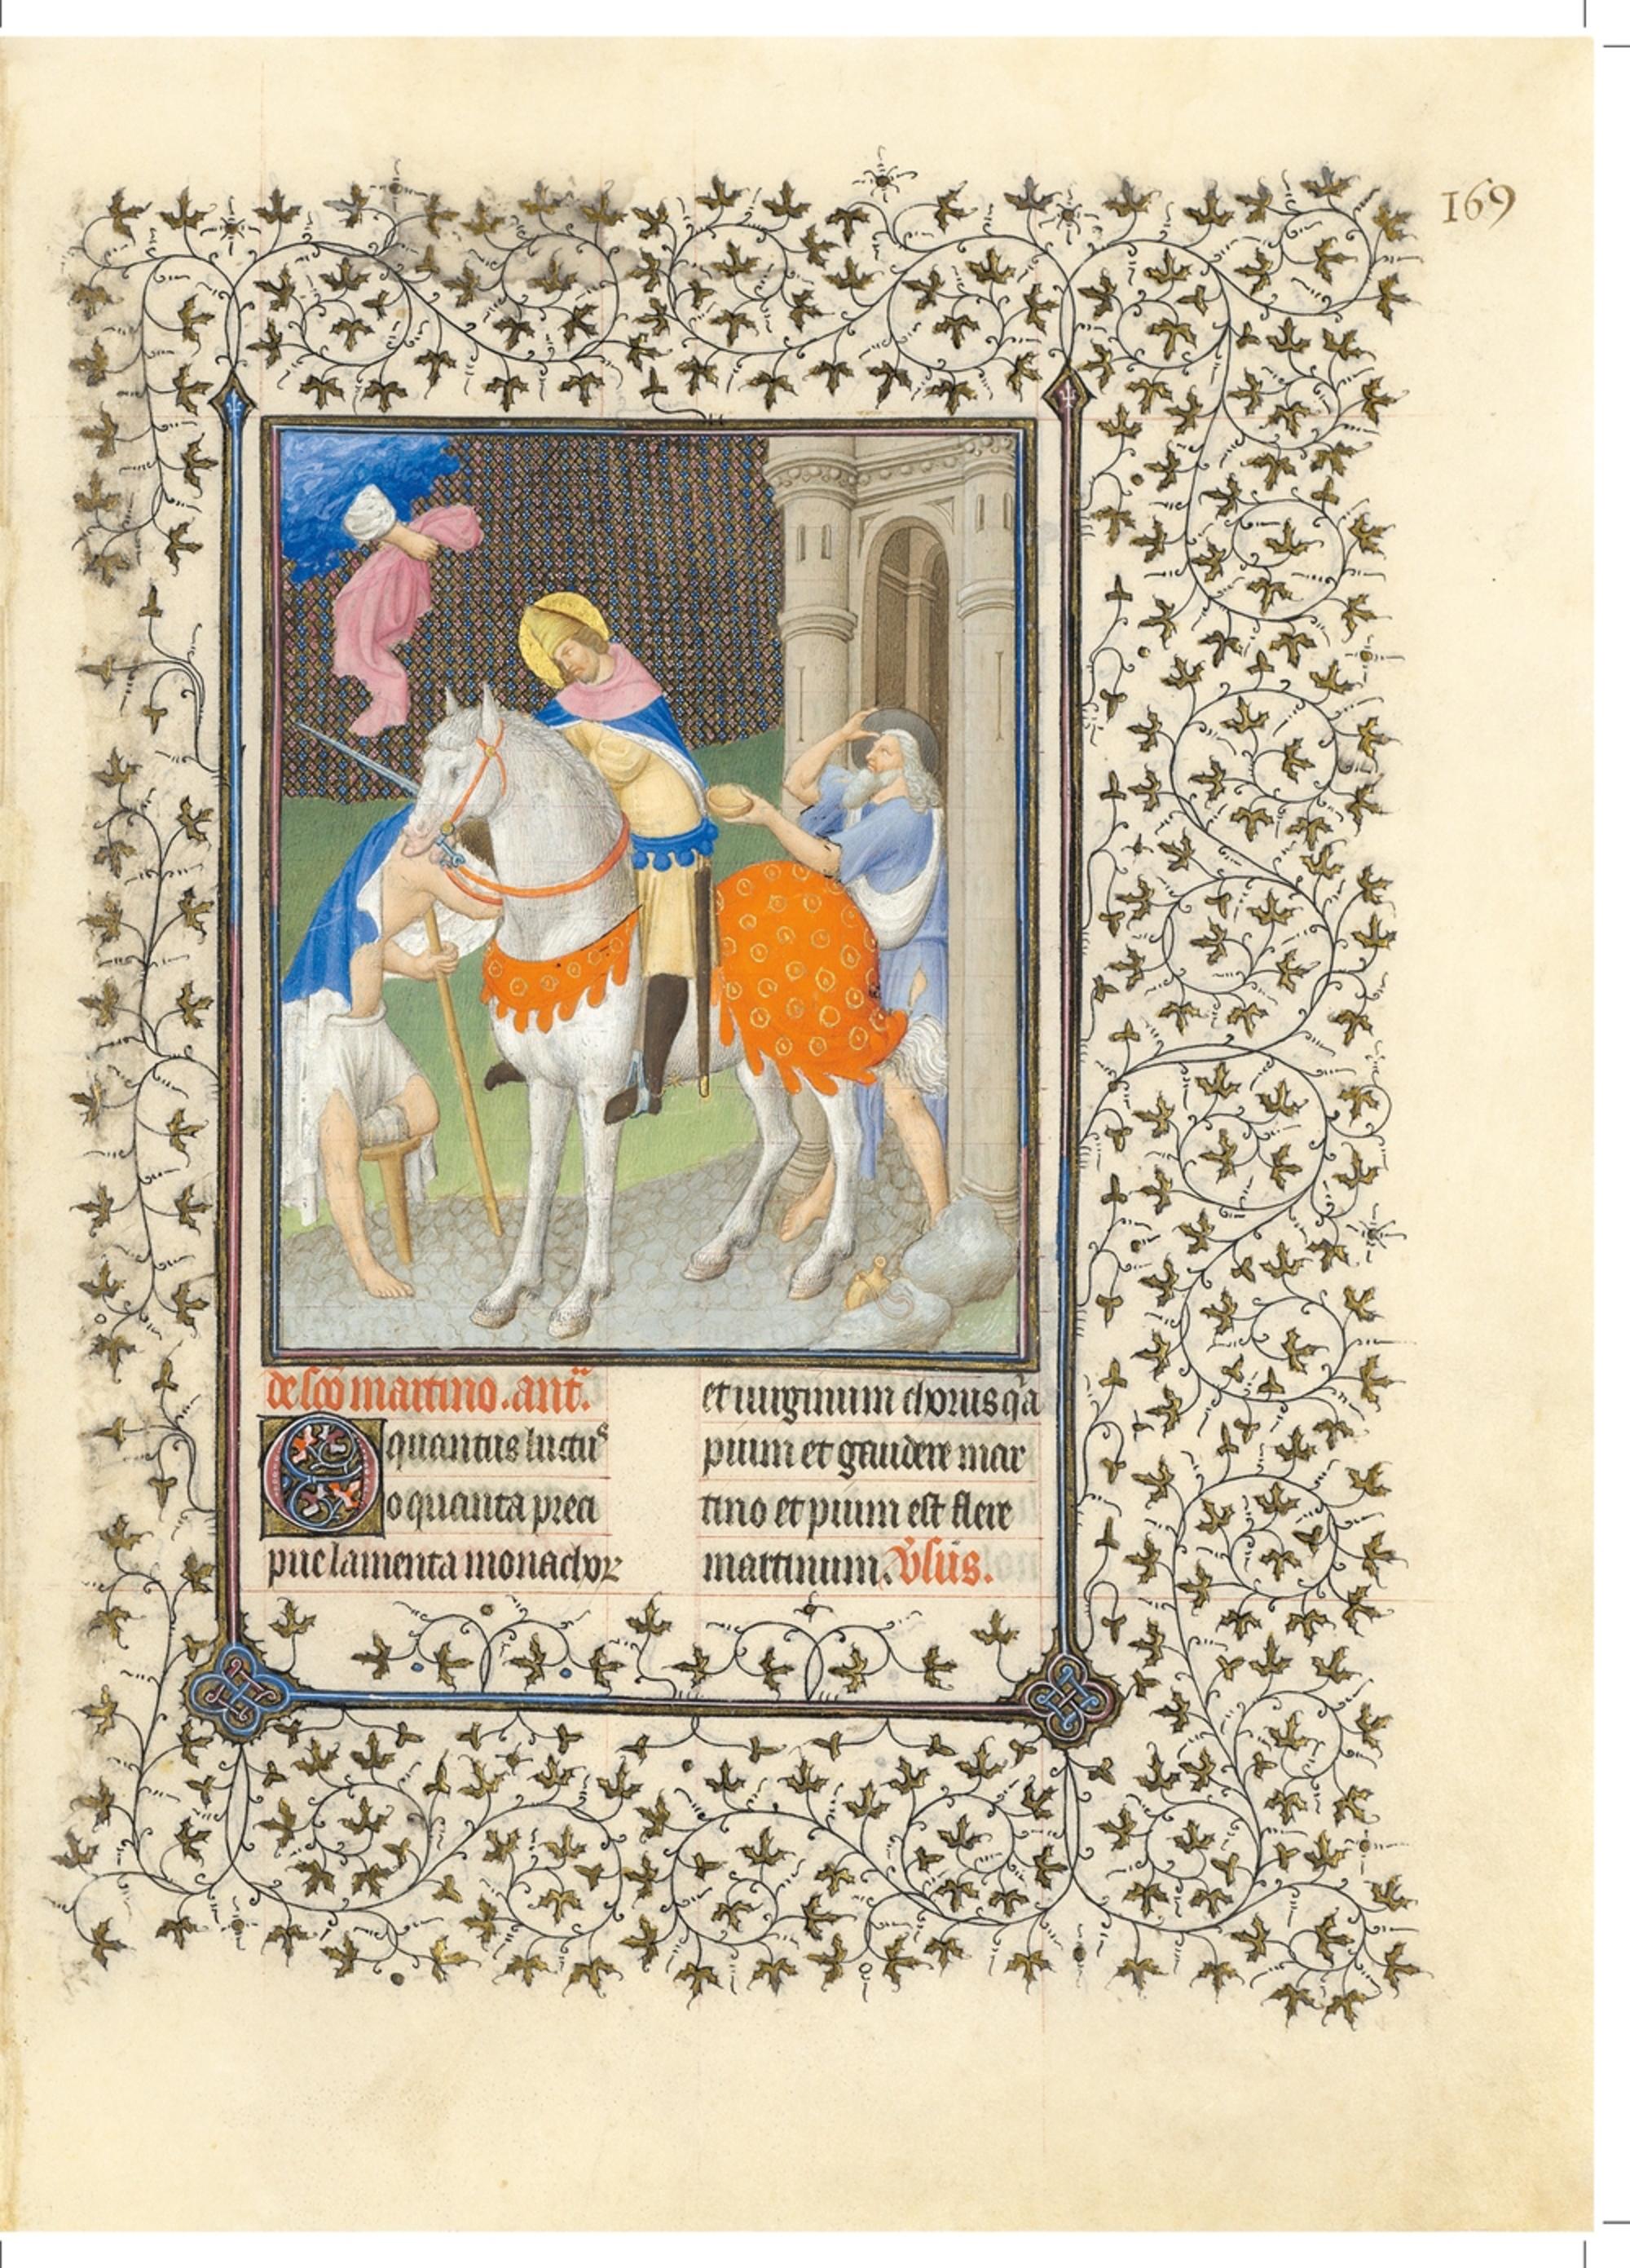 169
de sco martino. ant.
O quantus luctus
o quanta preci
pue lamenta monachoꝝ
et uirginum chorus qa
pium et gaudere mar
tino et pium est flere
martinum. Vsus.